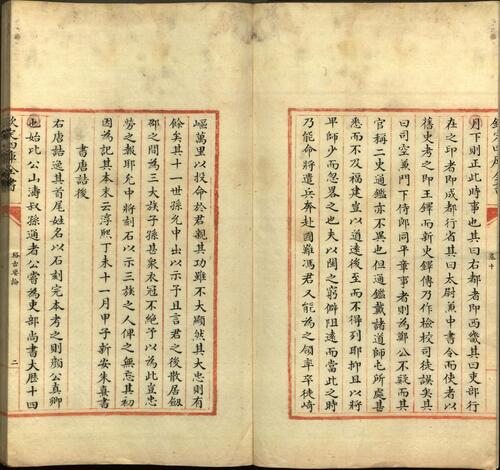 月下則正此時事也其曰右都者即西歲其曰吏部行
在之印者即成都行省其曰太尉兼中書令而使者以
舊史考之即王鐸而新史鐸傳乃作檢校司徒誤矣其
曰司空兼門下侍郎同平章事者則為鄭公不疑而其
官稱二史通鑑亦不異也但通鑑載諸道師屯所處甚
悉而不及福建豈以道遠後至而不得列耶抑且以將
卑師少而忽畧之也夫以閩之窮僻阻遠而當此之時
乃能命將遣兵奔赴國難馮君又能為之領率卒徒崎
嶇萬里以投命於君親其功雖不大顯然其大忠則有
餘矣其十一世孫允中出以示予且言君之後散居劒
邵之間為三大族子孫甚衆衣冠不絶予以為此豈忠
勞之報耶允中將刻石以示三族之人俾之無忘其初
因為記其本末云淳熙丁未十一月甲子新安朱熹書
書唐誥後
右唐誥逸其首尾姓名以石刻完本考之則顏公真卿
也始比公山濤叔孫通者公嘗為吏部尚書大厯十四
欽定四庫全書
格古要論
二